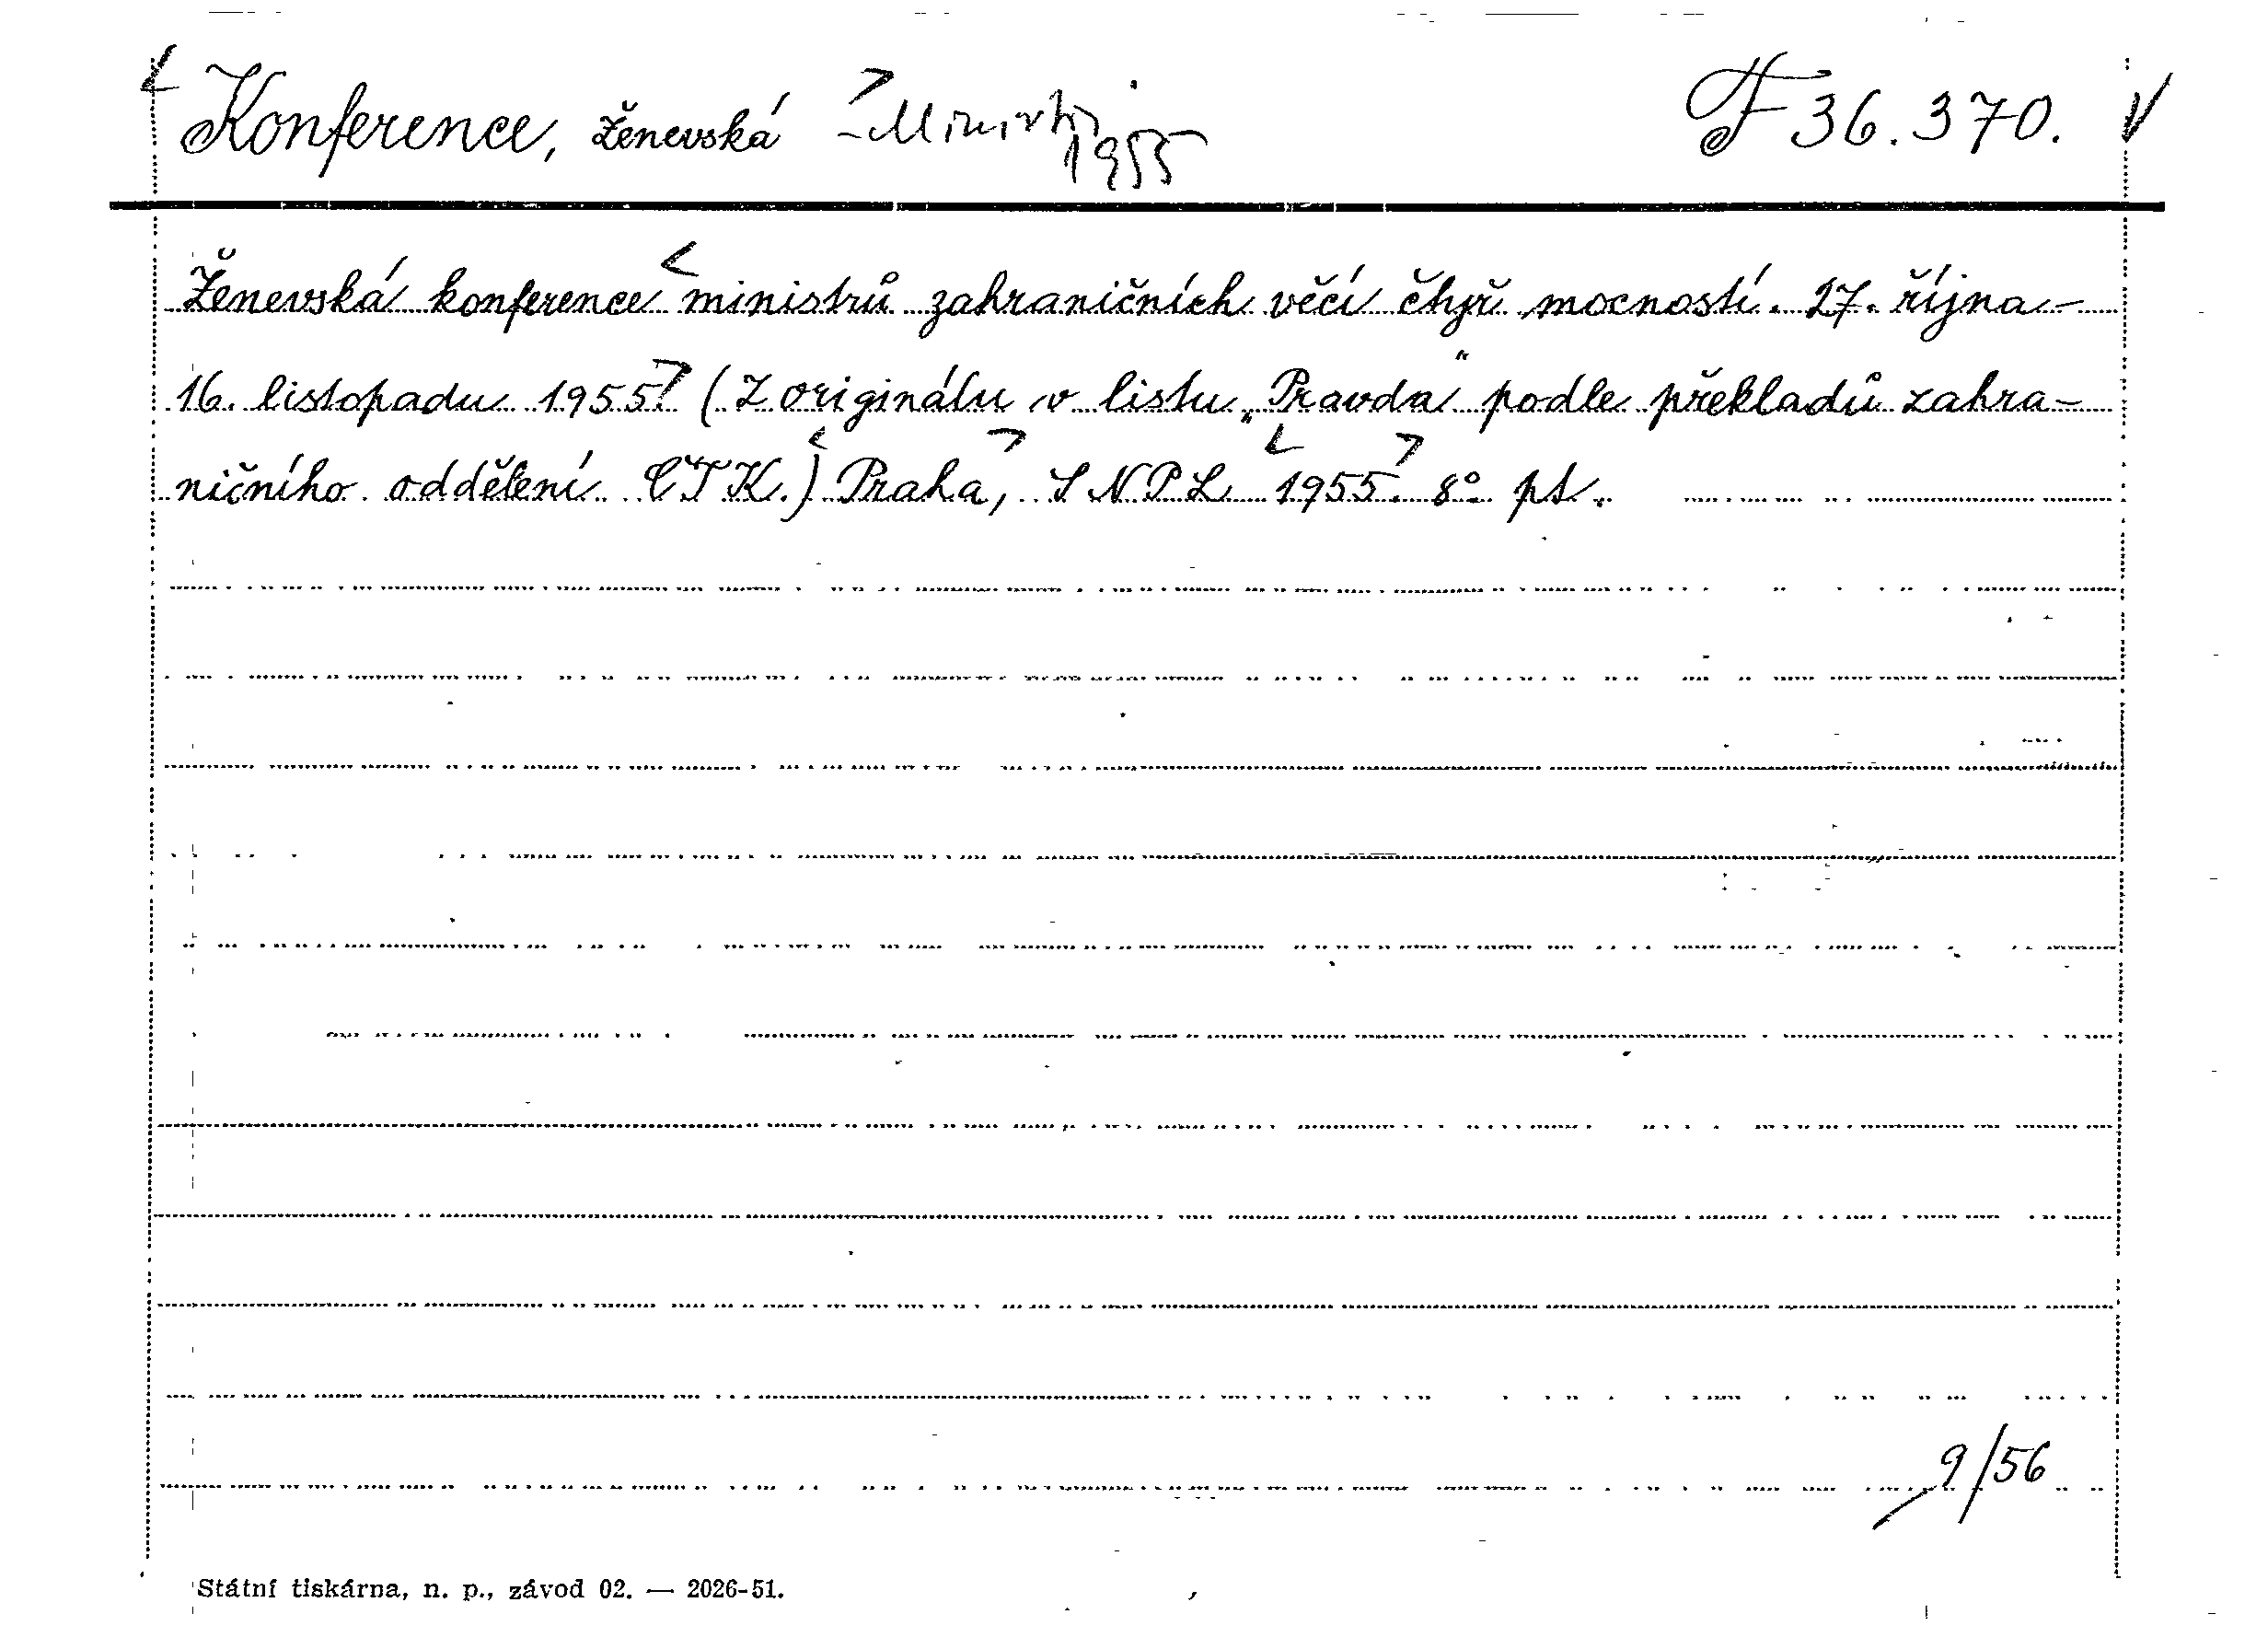 Konference, ženevská - Ministři 1955 F 36.370.
Ženevská konference ministrů zahraničních věcí čtyř mocností. 27. října -
16. listopadu 1955. (Z originálu v listu „Pravda“ podle překladů zahra-
ničního oddělení ČTK.) Praha, SNPL 1955. 8° pt.
9/56
Státní tiskárna, n. p., závod 02. — 2026-51.